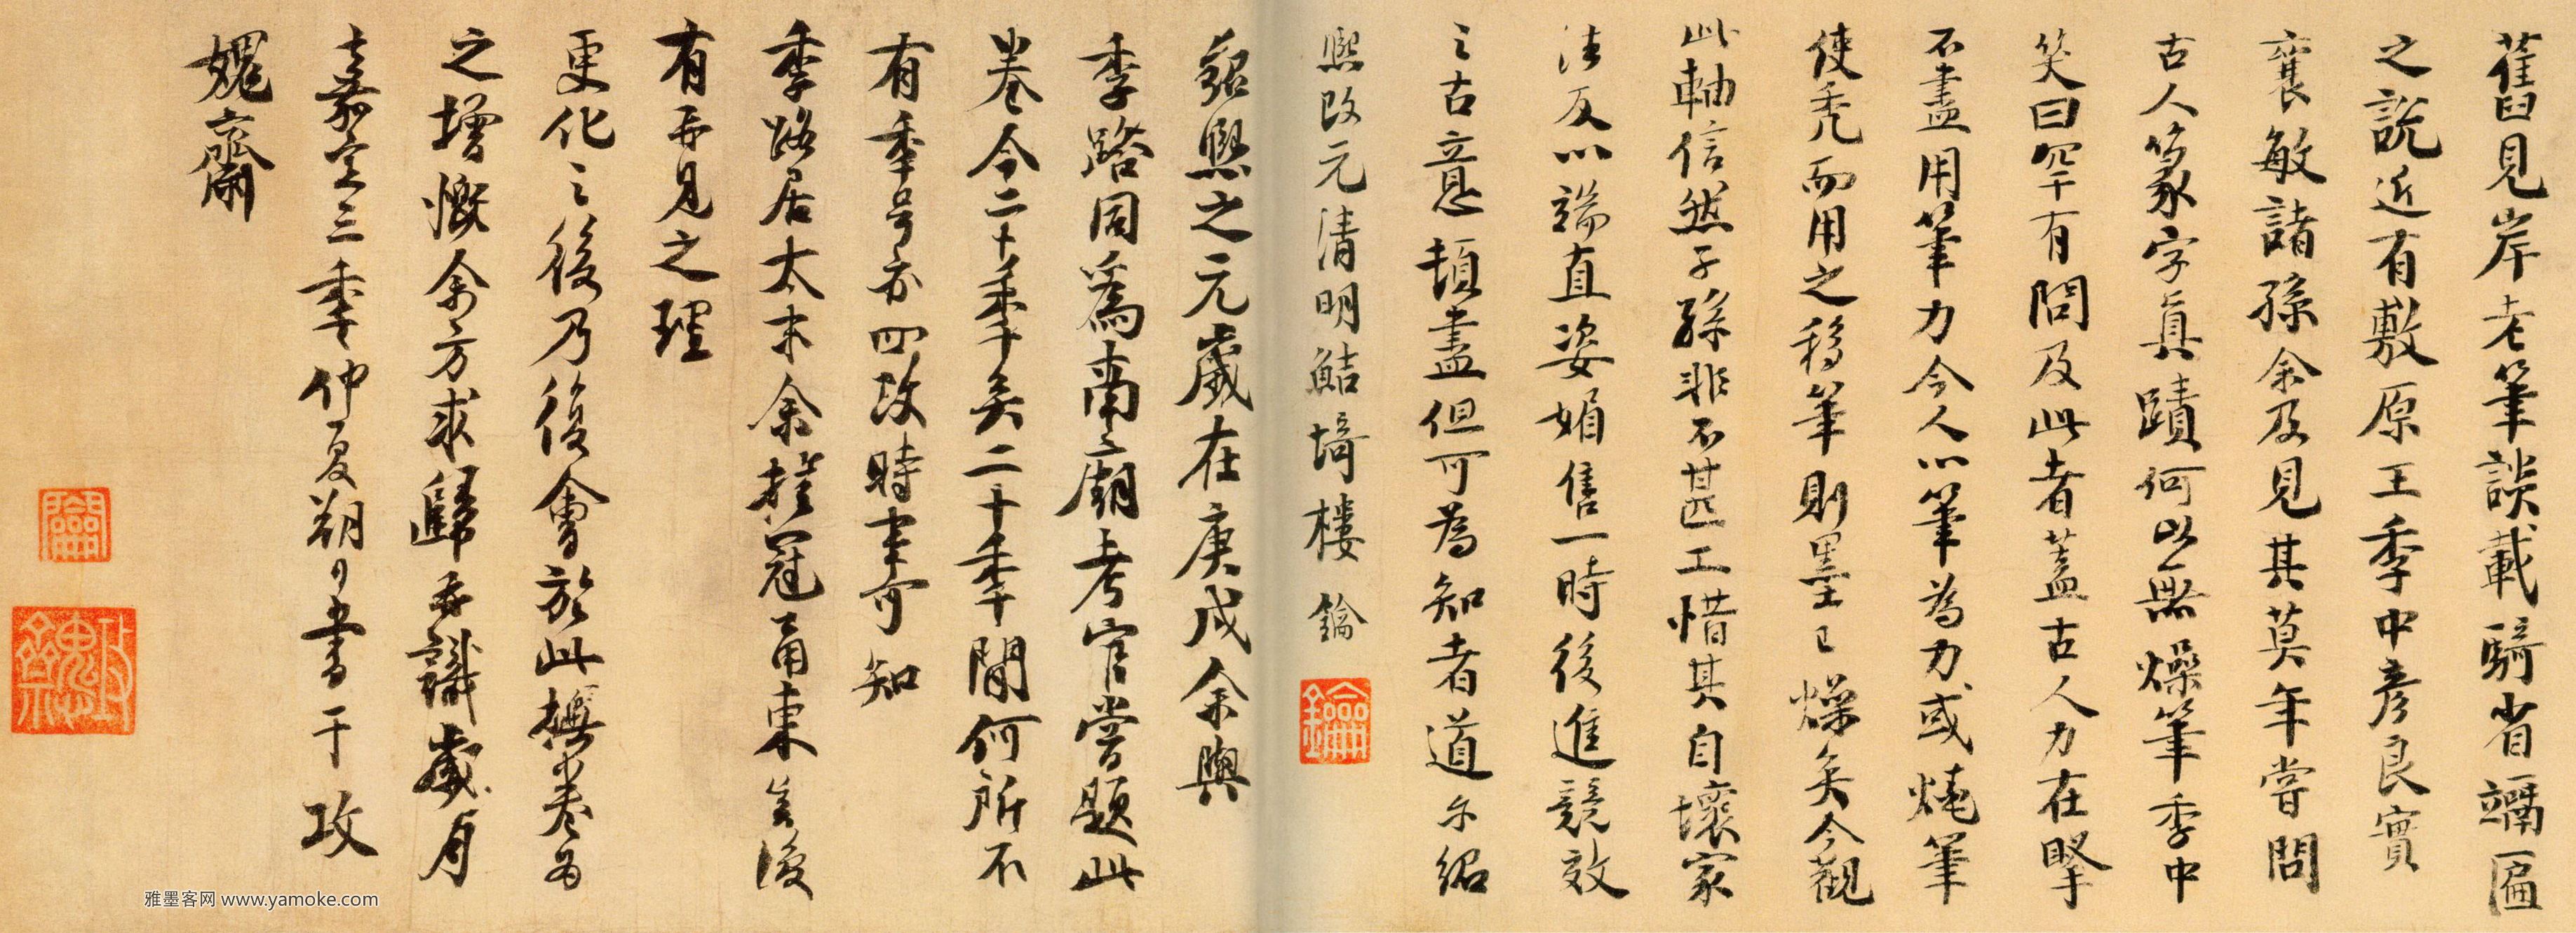 舊見岸老筆談載騎省竵匾
之說近有敷原王季中彥良實
襄敏諸孫余及見其莫年嘗問
古人篆字真蹟何以無燥筆季中
笑曰罕有問及此者蓋古人力在掔
不盡用筆力今人以筆為力或燒筆
使禿而用之移筆則墨已燥矣今觀
此軸信然子孫非不甚工惜其自壞家
法反以端直姿媚售一時後進競效
之古意頓盡但可為知者道尔紹
熙改元清明鮚埼樓鑰
紹熙之元歲在庚戌余與
季路同為南廟考官嘗題此
卷今二十年矣二十年間何所不
有年号亦四改時事可知
季路居太末余挂冠甬東
有再見之理
更化之後乃復會於此撫卷為
之增慨余方求歸再識歲月
嘉定三年仲夏朔日書于攻
媿齋
鑰
雅墨客网 www.yamoke.com